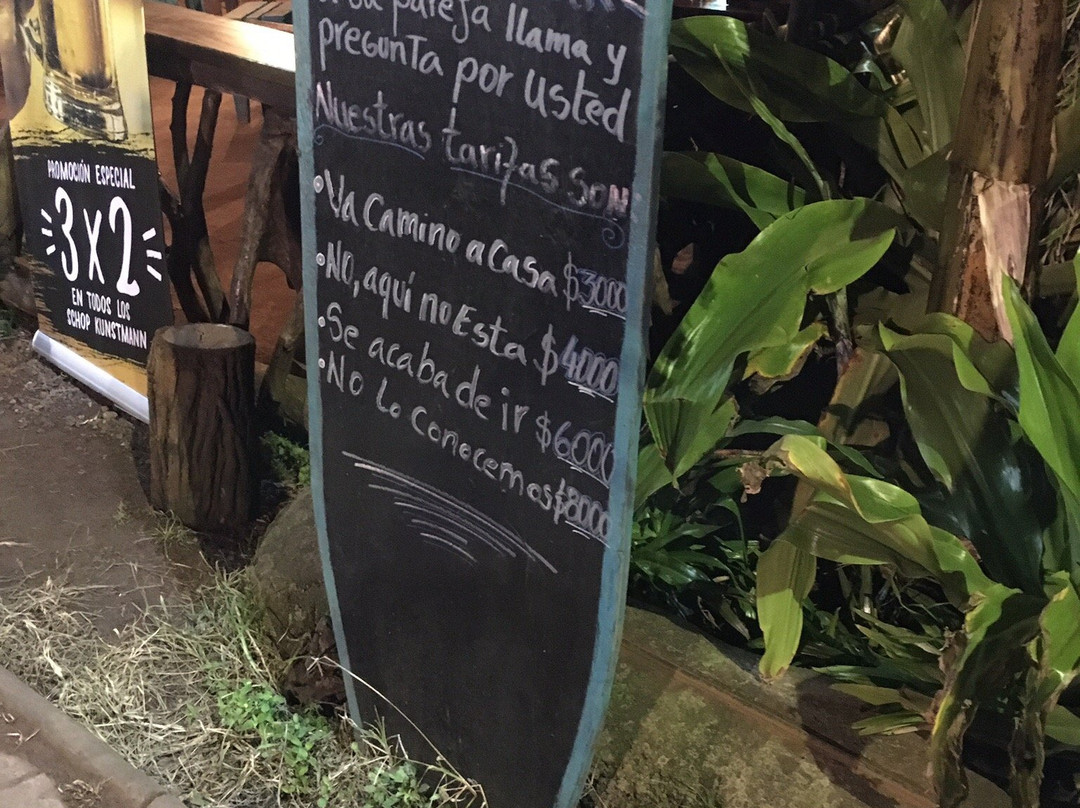 su pareja llama y
pregunta por Usted
Nuestras tarifas son
Va camino a Casa $3000
NO, aquí no Esta $4000
Se acaba de ir $6000
No Lo Conocemos $8000
PROMOCIÓN ESPECIAL
3X2
EN TODOS LOS
SCHOP KUNSTMANN